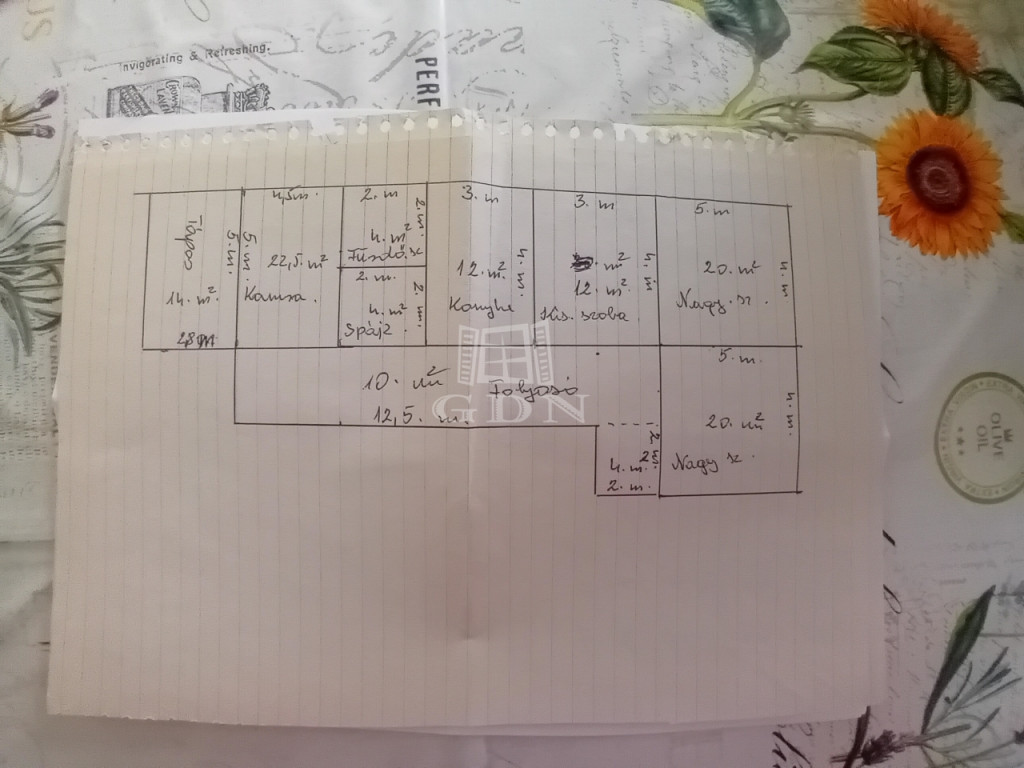 Invigorating & Refreshing.
PERF
Tápos
14. m²
2,8 m
5. m.
4,5 m.
5. m.
22,5. m²
Kamra.
2. m
2. m.
4. m²
Fürdő. sz
2. m.
2. m.
4. m²
Spájz
3. m
12. m²
4. m.
Konyha
3. m
m²
12. m²
4. m.
Kis. szoba
5. m
20. m²
4. m.
Nagy. sz.
10. m²
Folyosó
12,5. m.
2. m.
4. m²
2. m.
5. m.
20. m²
4. m.
Nagy sz.
GDN
OLIVE
OIL